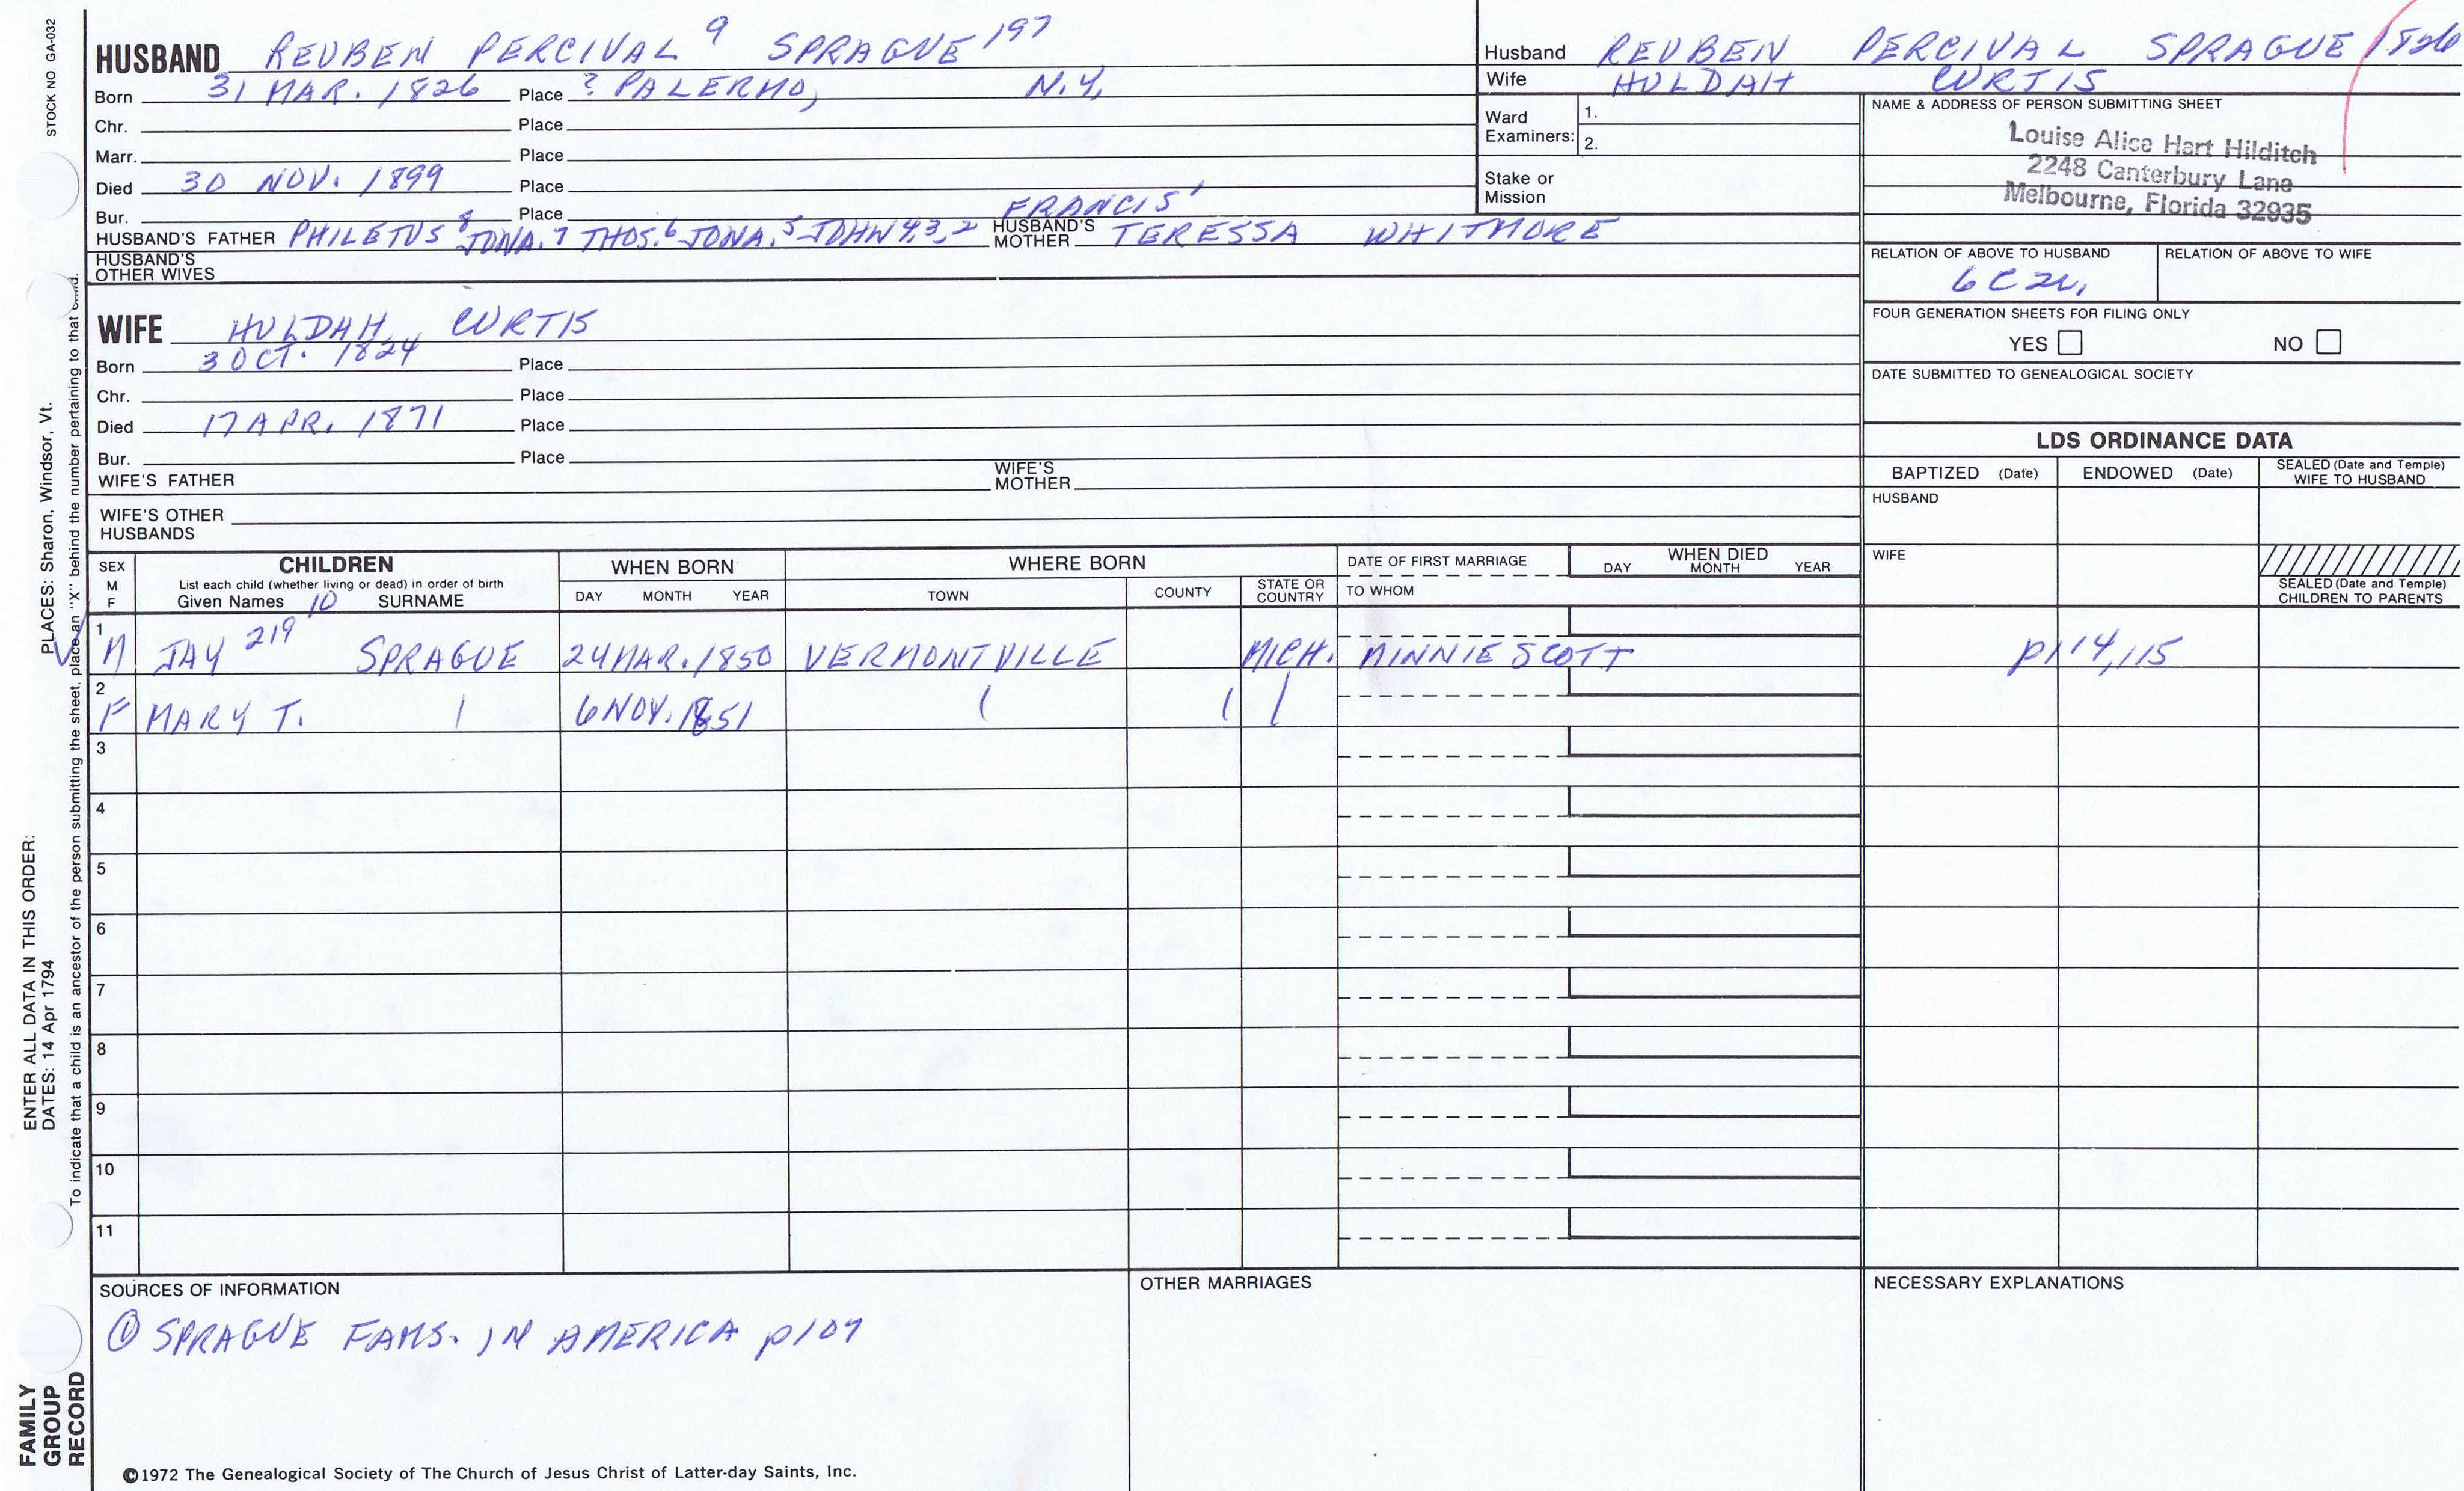 STOCK NO GA-032
HUSBAND REUBEN PERCIVAL 9 SPRAGUE 197
Born 31 MAR. 1826 Place ? PALERMO, N.Y.
Chr. Place
Marr. Place
Died 30 NOV. 1899 Place
Bur. Place
FRANCIS 1
HUSBAND'S FATHER PHILETUS 8 JONA. 7 THOS. 6 JONA. 5 JOHN 4,3,2 HUSBAND'S MOTHER TERESSA WHITMORE
HUSBAND'S OTHER WIVES
WIFE HULDAH CURTIS
Born 3 OCT. 1824 Place
Chr. Place
Died 17 APR. 1871 Place
Bur. Place
WIFE'S FATHER WIFE'S MOTHER
WIFE'S OTHER HUSBANDS
Husband REUBEN PERCIVAL SPRAGUE 1826
Wife HULDAH CURTIS
Ward Examiners: 1.
2.
Stake or Mission
NAME & ADDRESS OF PERSON SUBMITTING SHEET
Louise Alice Hart Hilditch
2248 Canterbury Lane
Melbourne, Florida 32935
RELATION OF ABOVE TO HUSBAND RELATION OF ABOVE TO WIFE
6C
FOUR GENERATION SHEETS FOR FILING ONLY
YES NO
DATE SUBMITTED TO GENEALOGICAL SOCIETY
LDS ORDINANCE DATA
BAPTIZED (Date) ENDOWED (Date) SEALED (Date and Temple) WIFE TO HUSBAND
HUSBAND
WIFE
SEALED (Date and Temple) CHILDREN TO PARENTS
SEX M F
CHILDREN
List each child (whether living or dead) in order of birth
Given Names 10 SURNAME
WHEN BORN
DAY MONTH YEAR
WHERE BORN
TOWN COUNTY STATE OR COUNTRY
DATE OF FIRST MARRIAGE
TO WHOM
WHEN DIED
DAY MONTH YEAR
1 M JAY 219 SPRAGUE 24 MAR. 1850 VERMONTVILLE MICH. MINNIE SCOTT p114,115
2 F MARY T. 6 NOV. 1851
3
4
5
6
7
8
9
10
11
SOURCES OF INFORMATION
① SPRAGUE FAMS. IN AMERICA p107
OTHER MARRIAGES
NECESSARY EXPLANATIONS
©1972 The Genealogical Society of The Church of Jesus Christ of Latter-day Saints, Inc.
FAMILY
GROUP
RECORD
ENTER ALL DATA IN THIS ORDER:
DATES: 14 Apr 1794 PLACES: Sharon, Windsor, Vt.
To indicate that a child is an ancestor of the person submitting the sheet, place an "X" behind the number pertaining to that child.